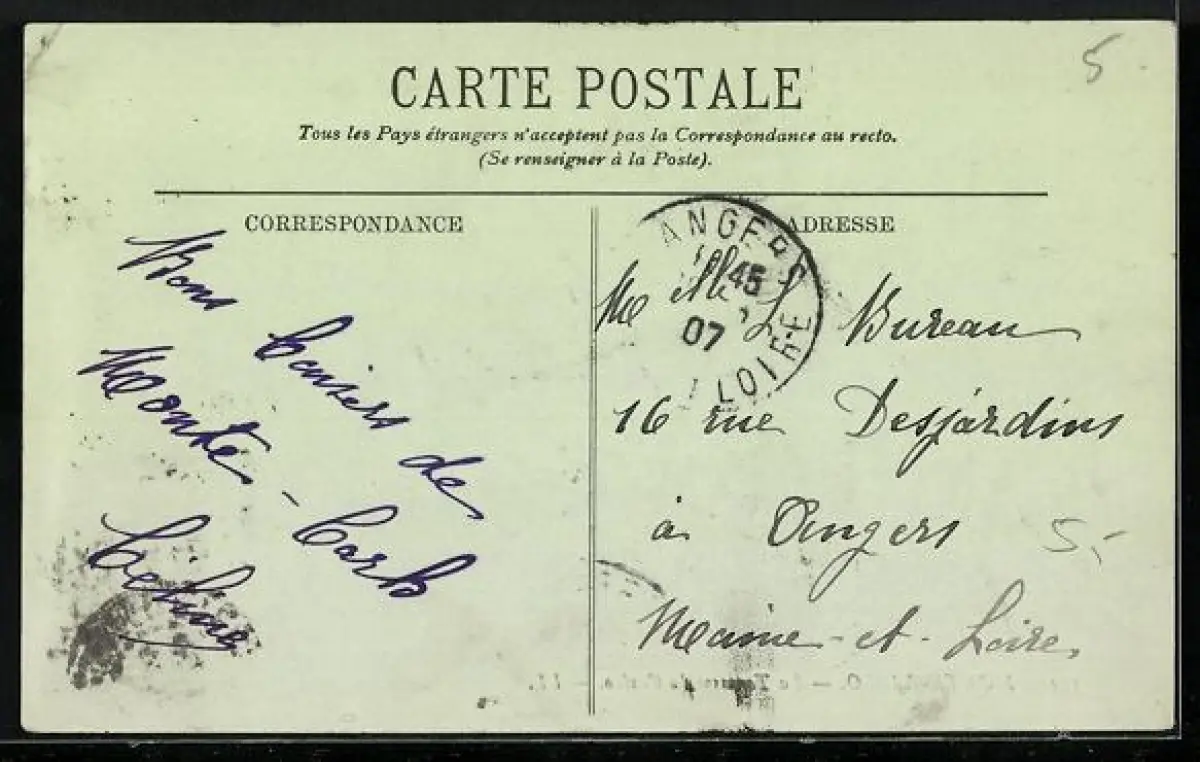 5
CARTE POSTALE
Tous les Pays étrangers n'acceptent pas la Correspondance au recto.
(Se renseigner à la Poste).
CORRESPONDANCE
ADRESSE
Bons baisers de
Monte-Carlo
Céline
ANGERS
45
07
LOIRE
Melle L. Bureau
16 rue Desjardins
à Angers
5,-
Maine-et-Loire